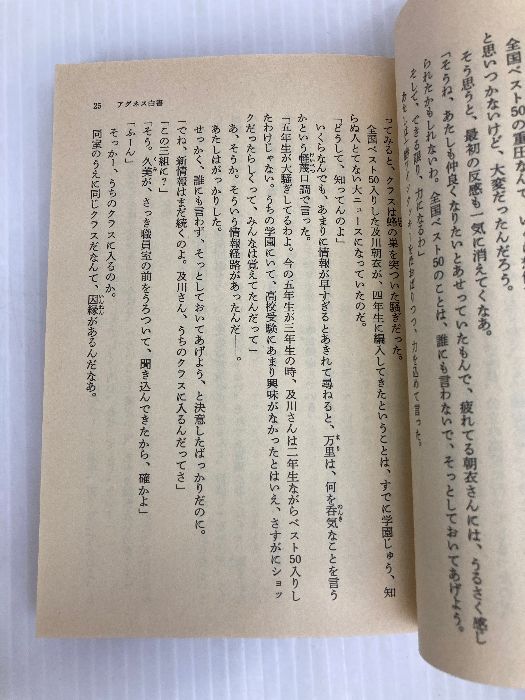 全国ベスト50の重田さんて、
と思いつかないけど、大変だったんだろう。
そう思うと、最初の反感も一気に消えてくなあ。
「そうね、あたしも仲良くなりたいとあせっていたもんで、疲れてる朝衣さんには、うるさく感じ
られたかもしれないわ。全国ベスト50のことは、誰にも言わないで、そっとしておいてあげよう。
そして、できる限り、力になるわ」
つつ、力を込めて言った。
ってみると、クラスは蜂の巣を突ついた騒ぎだった。
全国ベスト50入りした及川朝衣が、四年生に編入してきたということは、すでに学園じゅう、知
らぬ人とてない大ニュースになっていたのだ。
「どうして、知ってんのよ」
いくらなんでも、あまりに情報が早すぎるとあきれて尋ねると、万里は、何を呑気なことを言う
かという軽蔑口調で言った。
「五年生が大騒ぎしてるわよ。今の五年生が三年生の時、及川さんは二年生ながらベスト50入りし
たわけじゃない。うちの学園にいて、高校受験にあまり興味がなかったとはいえ、さすがにショッ
クだったらしくって、みんなは覚えてたんだって」
あ、そうか。そういう情報経路があったんだ――。
あたしはがっかりした。
せっかく、誰にも言わず、そっとしておいてあげよう、と決意したばっかりだのに。
「でね、新情報はまだ続くのよ。及川さん、うちのクラスに入るんだってさ」
「この三組に?」
「そう。久美が、さっき職員室の前をうろついて、聞き込んできたから、確かよ」
「ふーん」
そっかー、うちのクラスに入るのか。
同室のうえに同じクラスだなんて、因縁があるんだなあ。
25 アグネス白書